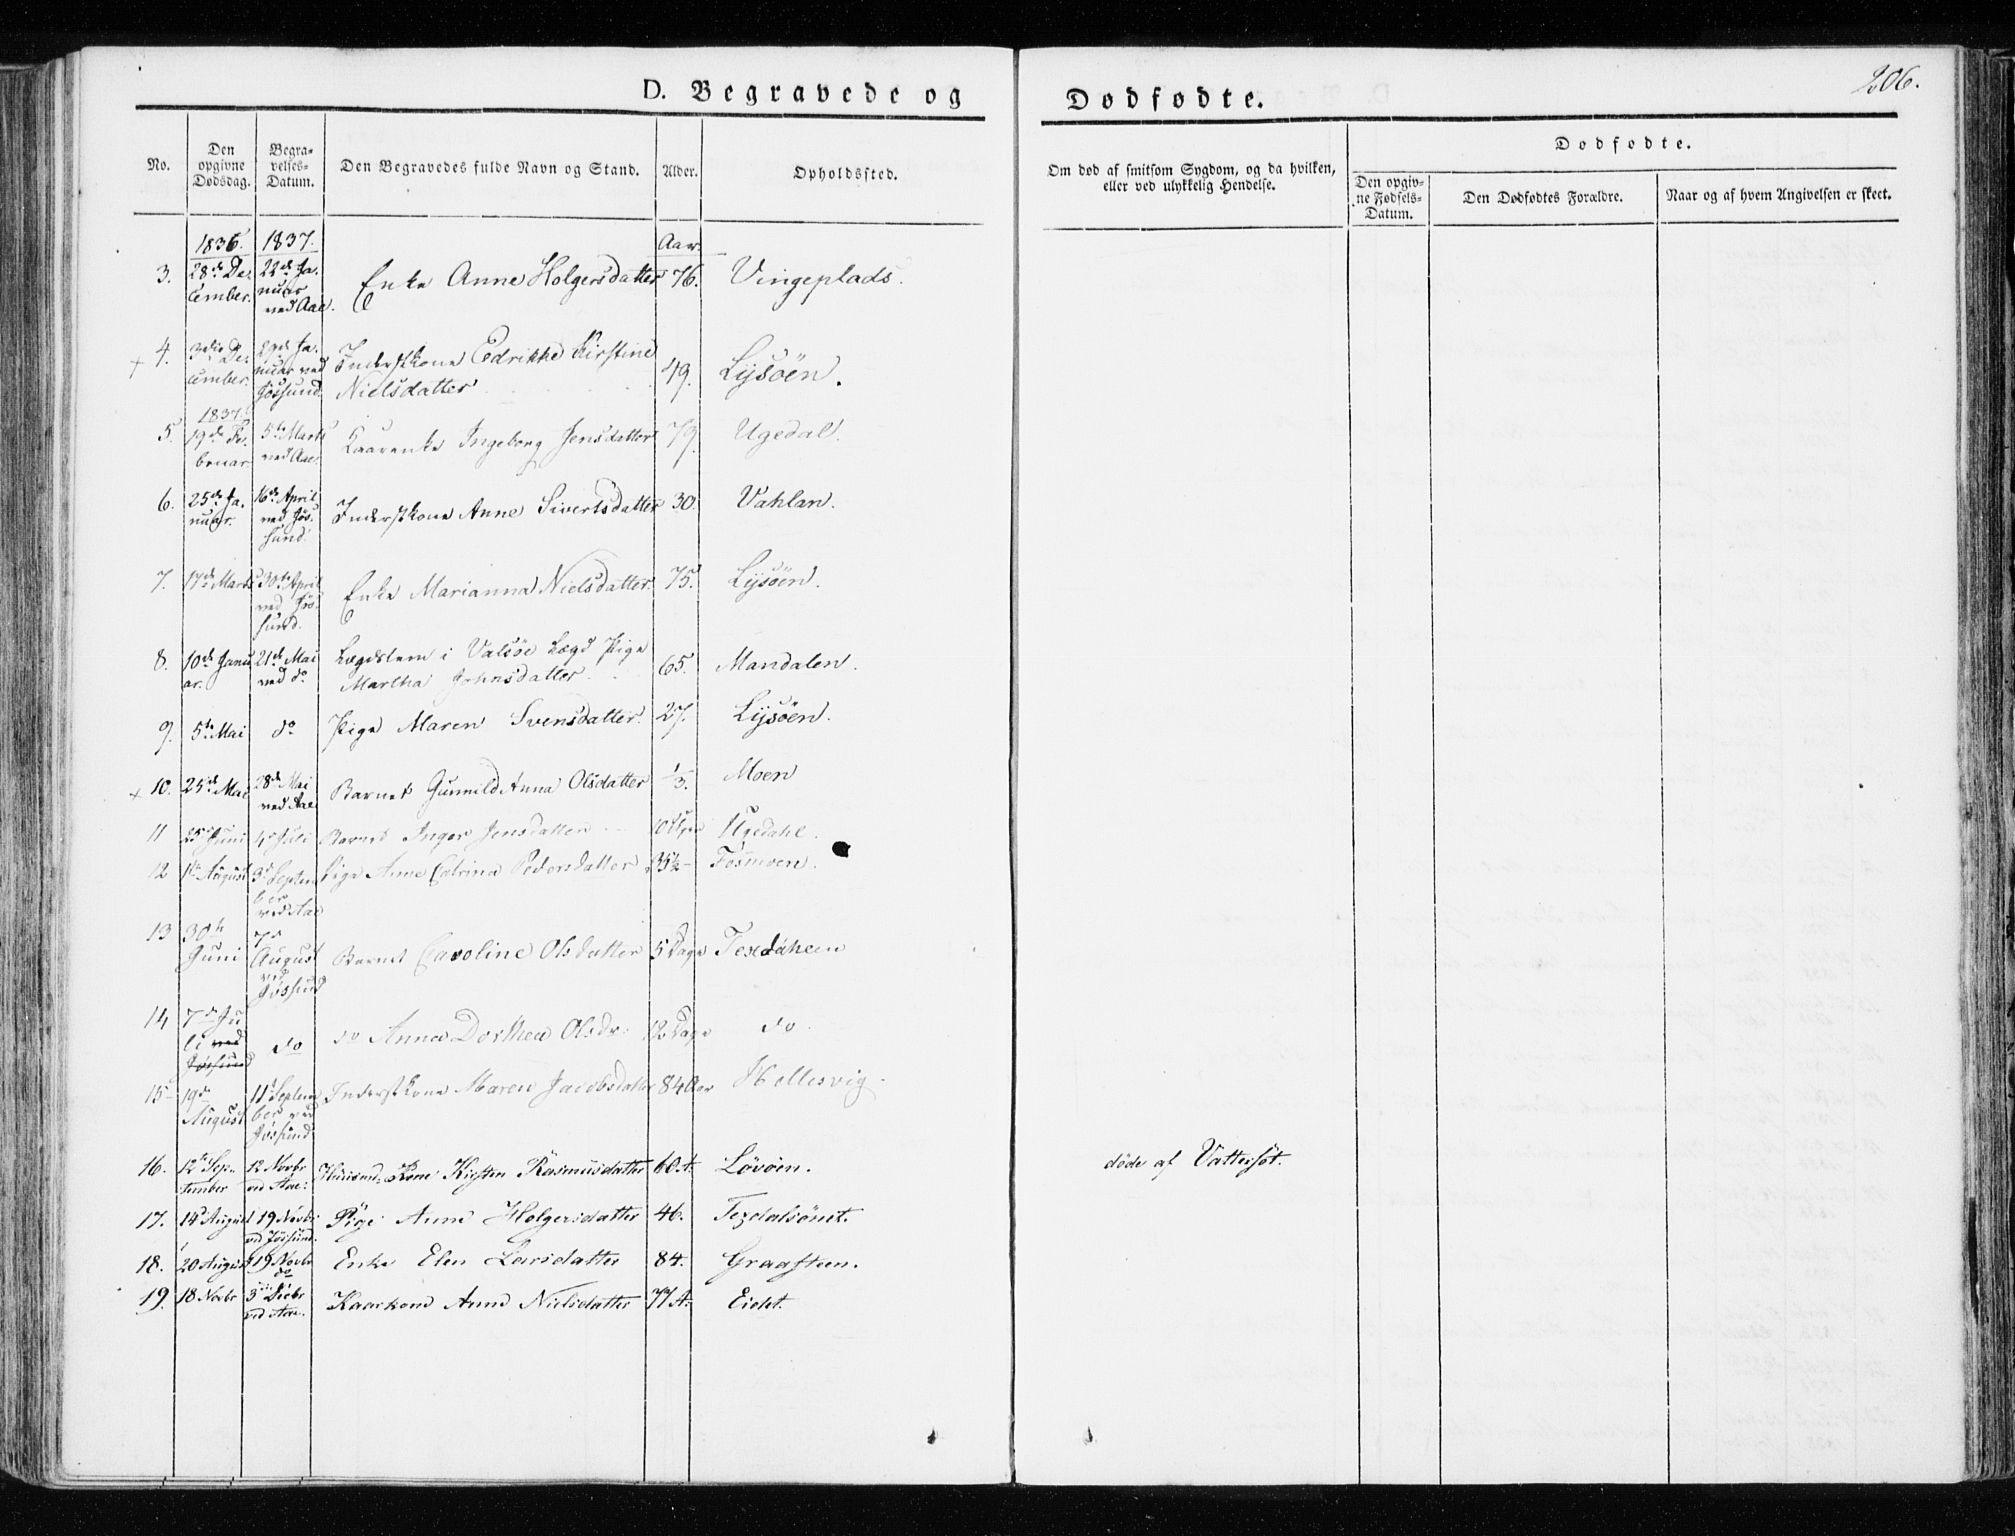 206.
D. Begravede og Dødfødte.
No. Den opgivne Dødsdag. Begravelses-Datum. Den Begravedes fulde Navn og Stand. Alder. Opholdssted. Om død af smitsom Sygdom, og da hvilken, eller ved ulykkelig Hendelse. Dødfødte.
Den opgivne Fødsels-Datum. Den Dødfødtes Forældre. Naar og af hvem Angivelsen er skeet.
1836. 1837. Aar.
3. 28de December. 22de Januar ved Aae. Enke Anne Holgersdatter 76. Vingeplads.
4. 3die December. 29de Januar ved Jøssund. Inderstkone Edrikke Kirstine Nielsdatter 49. Lysöen.
1837.
5. 19de Februar. 5te Marts ved Aae. Kaarenke Ingeborg Jensdatter 79. Ugedal.
6. 25de Januar. 16de April ved Jøssund. Inderstkone Anne Sivertsdatter 30. Vahlan.
7. 17de Marts 30te April ved Jøssund. Enke Marianna Nielsdatter. 75. Lysöen.
8. 10de Januar. 21de Mai ved do Lægdslem i Valsöe Lægd Pige Martha Johnsdatter 65. Mandalen.
9. 5te Mai do Pige Maren Svensdatter. 27. Lysöen.
10. 25de Mai 28de Mai ved Aae Barnet Gunnild Anna Olsdatter 1/3. Moen
11 25de Juni 4de Juli Barnet Inger Jensdatter 10 Ugedahl.
12 1te August 3de September ved Aae Pige Anne Catrina Pedersdatter 35½ Fösmoen.
13 30te Juni 7de August ved Jøssund Barnet Caroline Olsdatter 5 Dage Texdahlen
14 7de Juli ved Jøssund do do Anna Dorthea Olsdr. 12 Dage do
15 19de August 11te September ved Jøssund Inderstkone Maren Jacobsdatter 84 Aar Hellesvig.
16. 12te September 12 Novbr ved Aae: Huusmd: Kone Kirsten Rasmusdatter 60 A. Lövöen. døde af Vattersot.
17. 14de August 19 Novbr ved Jøssund. Pige Anne Holgersdatter 46. Texdalsönet.
18. 20 August 19 Novbr do Enke Elen Larsdatter 84. Graasteen.
19. 18 Novbr 3die Decbr ved Aae. Kaarkone Anne Nielsdatter 77 A. Eidet.